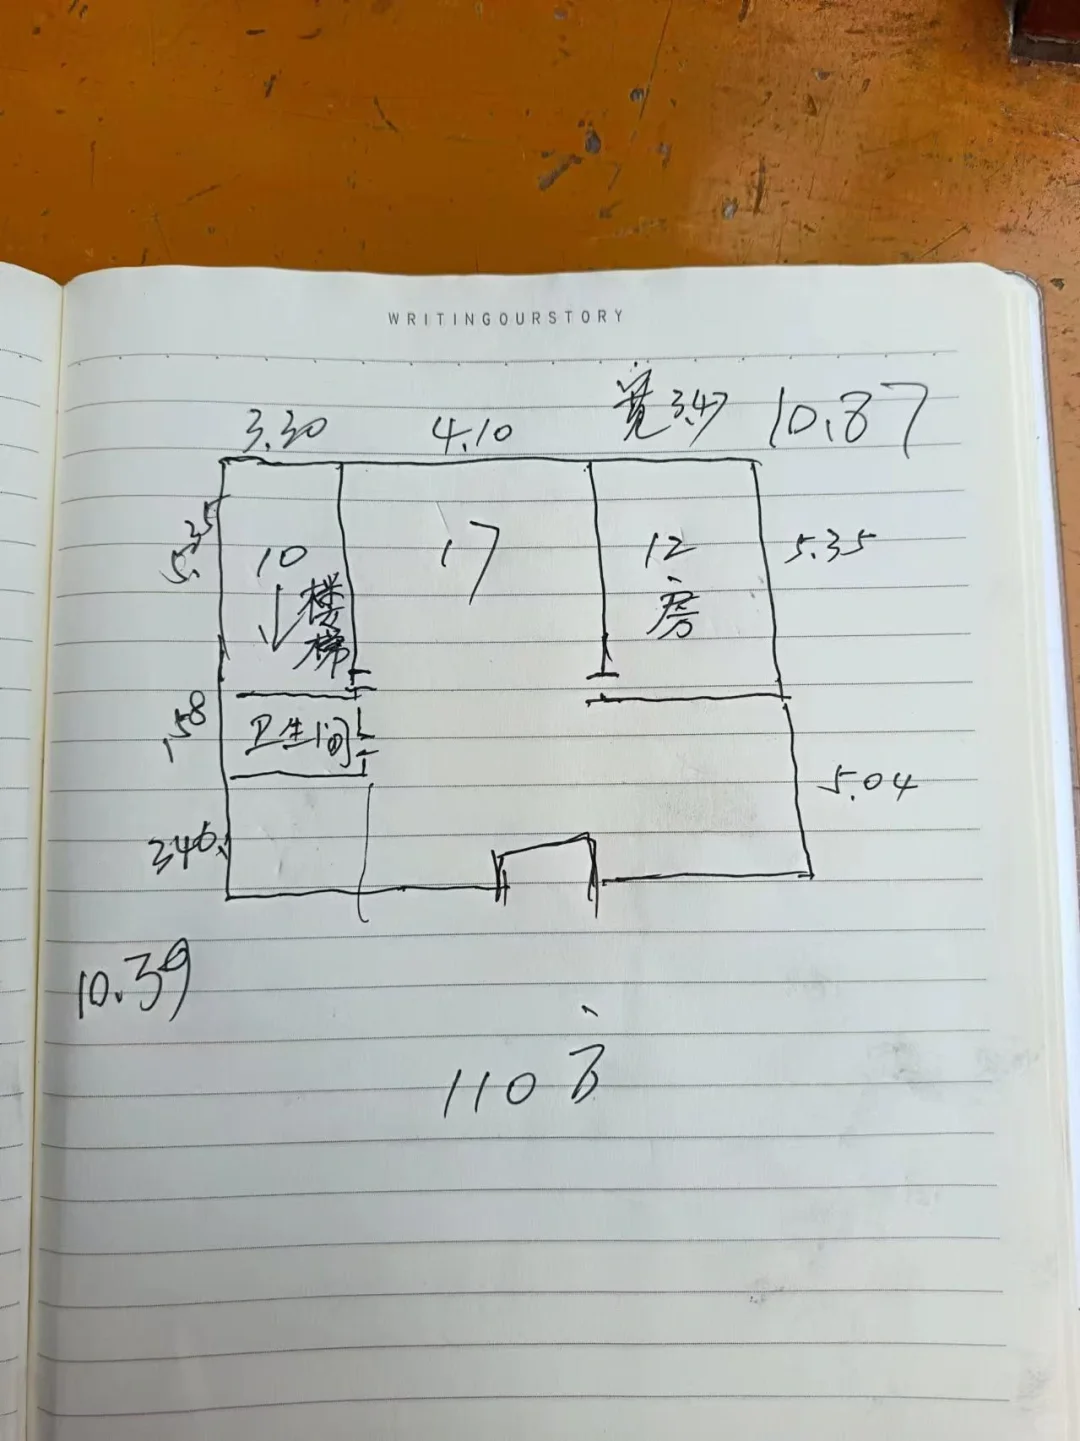 WRITINGOURSTORY
3.30 4.10 宽3.47 10.87
5.35 10 17 12 5.35
楼梯 房
1.58 卫生间
5.04
3.46
10.39
110方